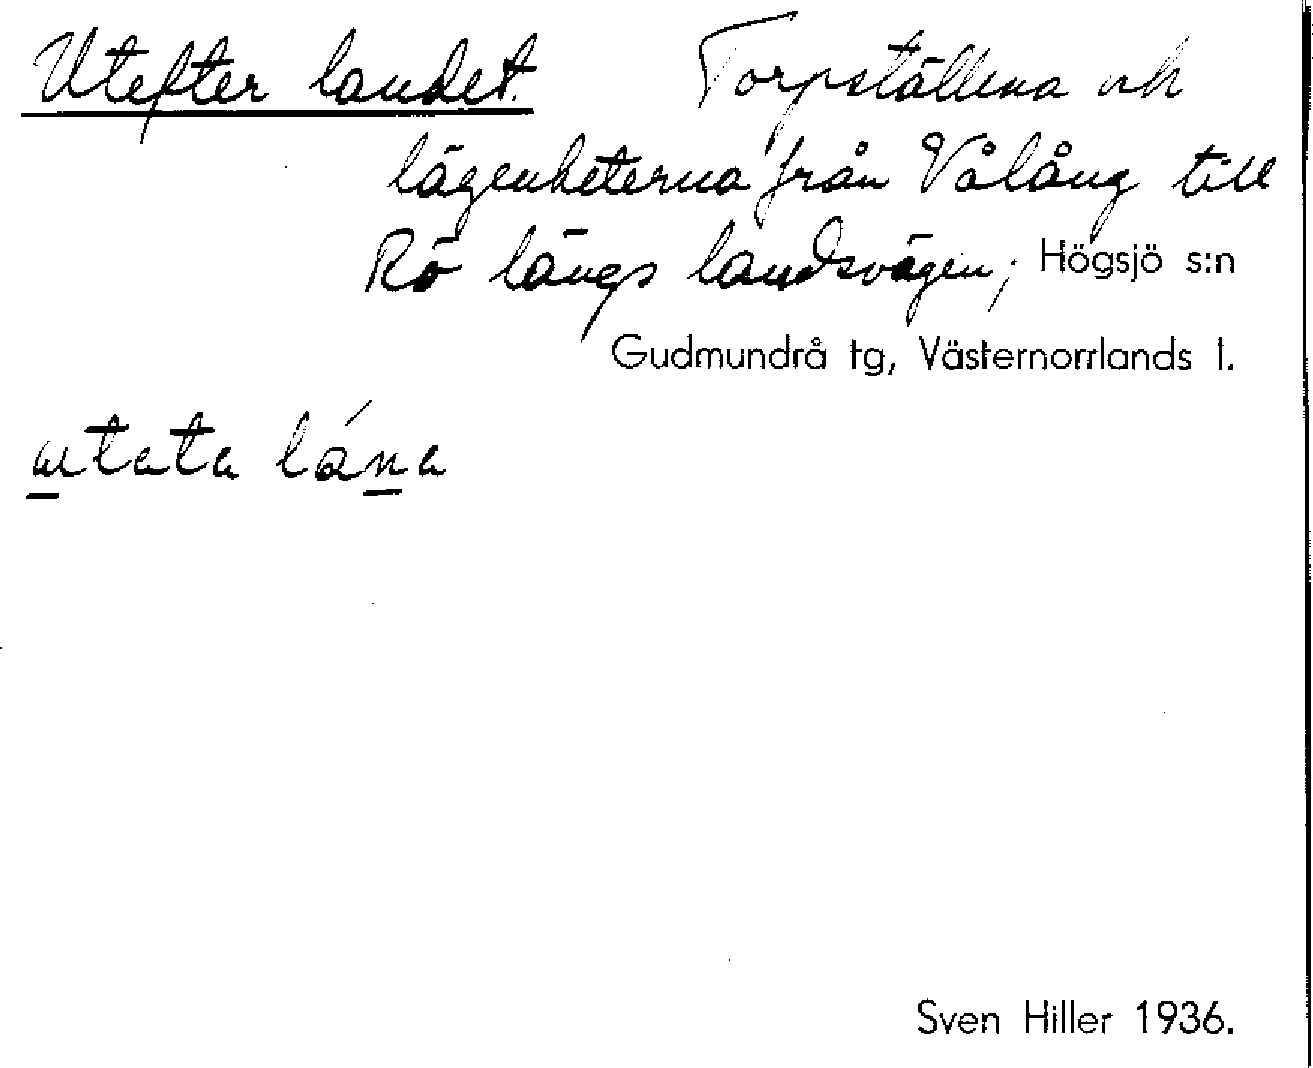 Utefter landet. Torpställena och
lägenheterna från Vålång till
Rö längs landsvägen; Högsjö s:n
Gudmundrå tg, Västernorrlands l.
utata lána
Sven Hiller 1936.